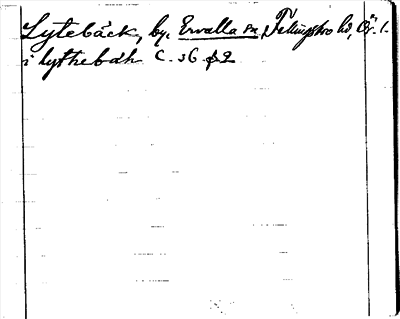 Lytebäck, by, Ervalla sn, Fellingsbro hd, Ör. l.
i lythebäk C. 36 §2